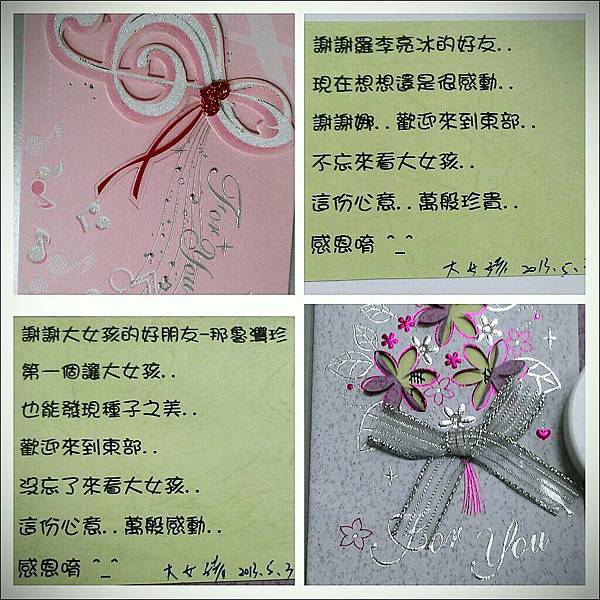 For You
謝謝羅李亮冰的好友..
現在想想還是很感動..
謝謝娜..歡迎來到東部..
不忘來看大女孩..
這份心意..萬般珍貴..
感恩唷 ^_^
大女孩 2013.5.3
謝謝大女孩的好朋友-那魯灣珍
第一個讓大女孩..
也能發現種子之美..
歡迎來到東部..
沒忘了來看大女孩..
這份心意..萬般感動..
感恩唷 ^_^
大女孩 2013.5.3
For You